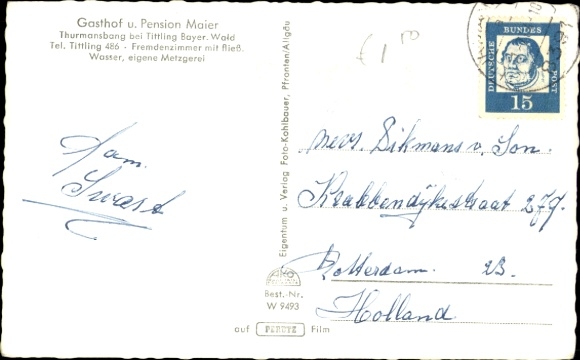 Gasthof u. Pension Maier
Thurmansbang bei Tittling Bayer. Wald
Tel. Tittling 486 - Fremdenzimmer mit fließ.
Wasser, eigene Metzgerei
Fam.
Swart
Eigentum u. Verlag Foto-Kohlbauer, Pfronten/Allgäu
Best.-Nr.
W 9493
auf PERUTZ Film
DEUTSCHE BUNDES POST
15
Mevr. Dikmans v. Son.
Krabbendijkestraat 279.
Rotterdam. 23.
Holland.